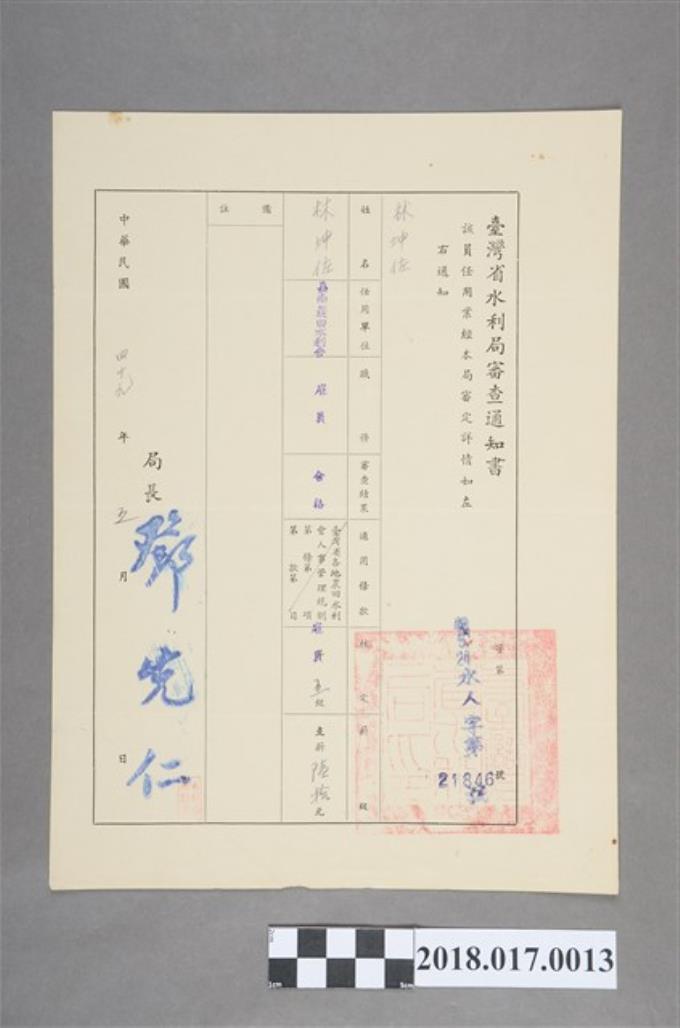 臺灣省水利局審查通知書
該員任用業經本局審定詳情如左
右通知
林坤佐
字第 號
水人字第
21846
號
姓名
任用單位
職務
審查結果
適用條款
核定薪級
林坤佐
嘉南農田水利會
雇員
合格
臺灣省各地農田水利
會人事管理規則
第 條第 項
第 款第 目
雇員五級
支薪陸拾元
備註
局長 鄧先仁
中華民國四十九年五月 日
2018.017.0013
1cm
5cm